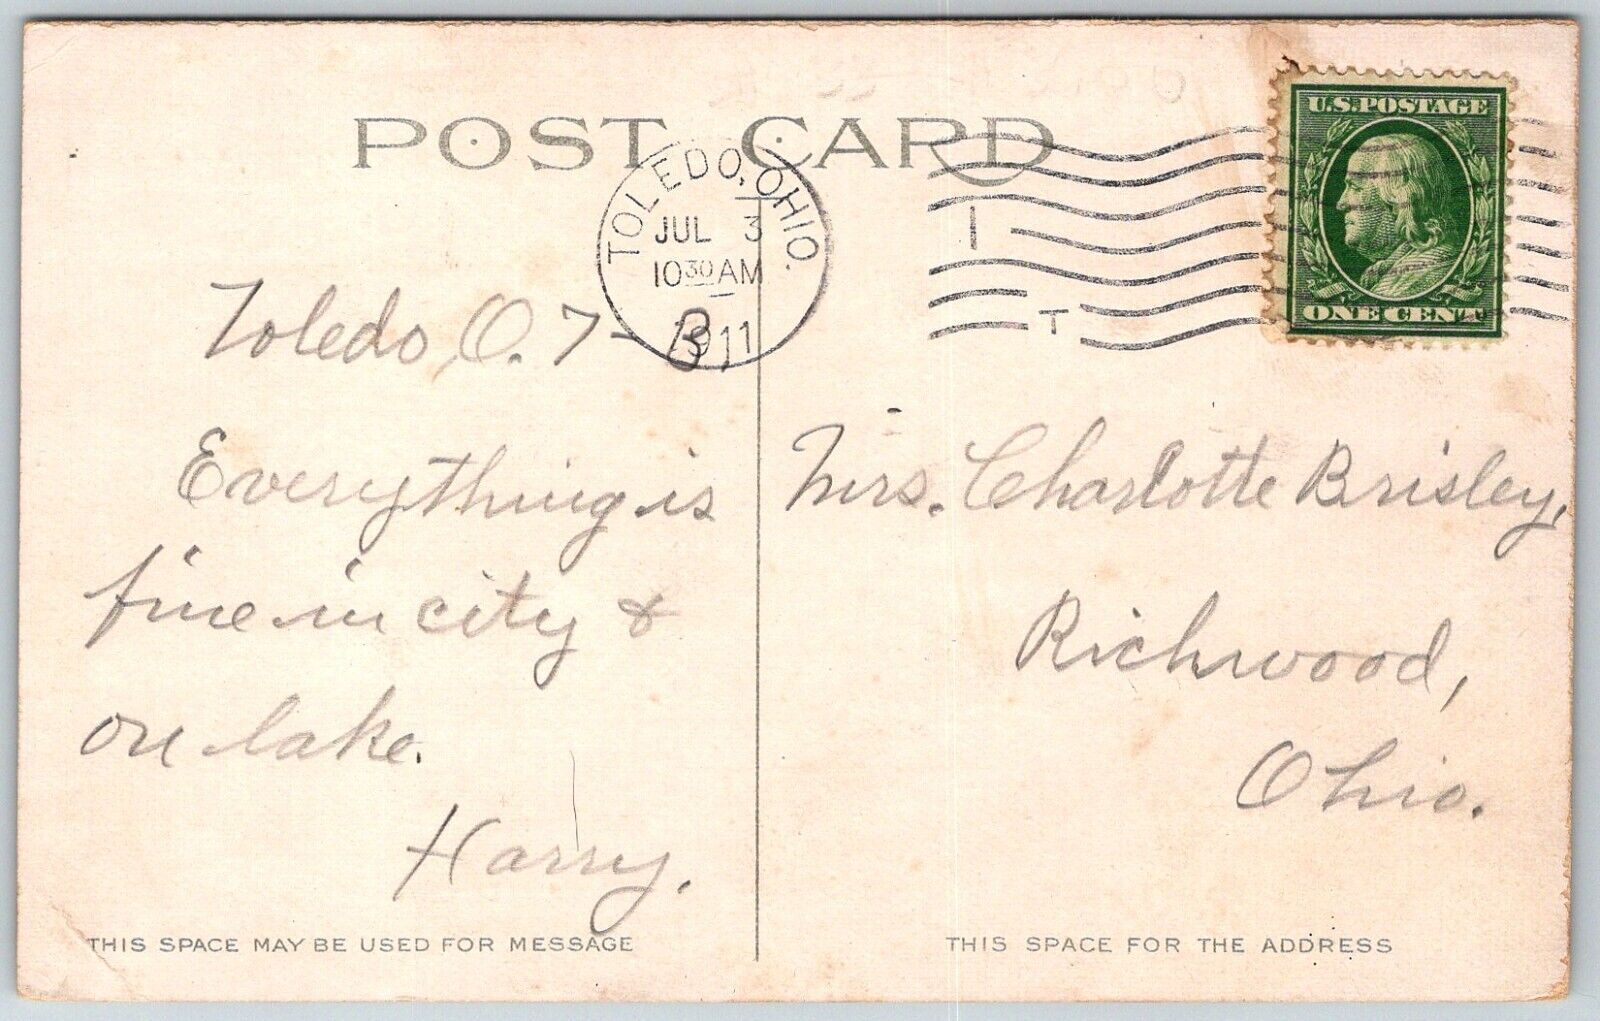 POST CARD
TOLEDO, OHIO.
JUL 3
10 30 AM
1911
I
T
U.S. POSTAGE
ONE CENT
Toledo, O. 7-3
Everything is
fine in city &
on lake.
Harry.
Mrs. Charlotte Brisley,
Richwood,
Ohio.
THIS SPACE MAY BE USED FOR MESSAGE
THIS SPACE FOR THE ADDRESS